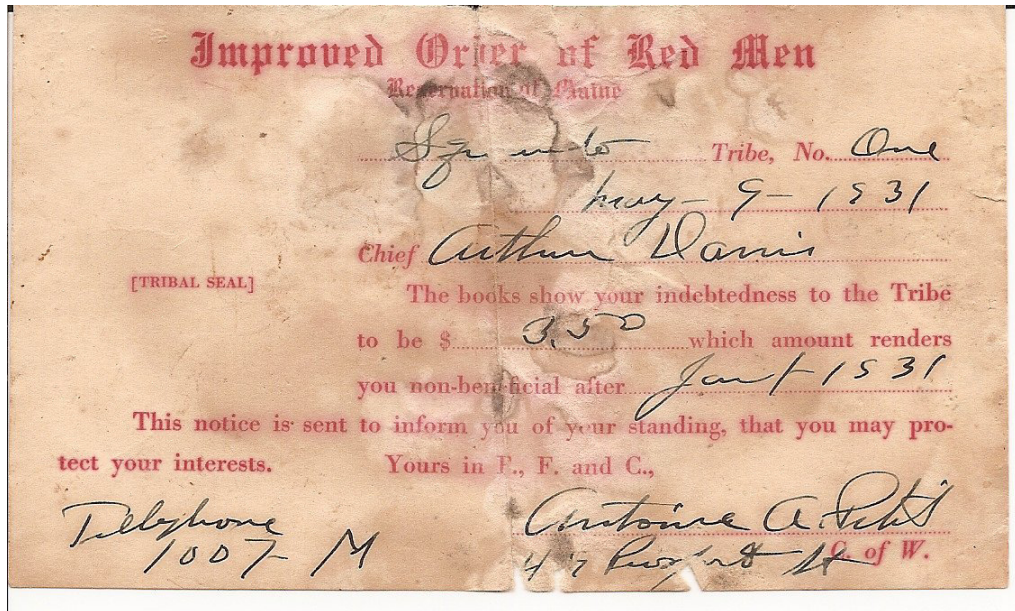 Improved Order of Red Men
Reservation of Maine
Tribe, No. One
May - 9 - 1931
Chief Arthur Davis
[TRIBAL SEAL]
The books show your indebtedness to the Tribe
to be $ 3.50 which amount renders
you non-beneficial after Jan 1 1931
This notice is sent to inform you of your standing, that you may pro-
tect your interests. Yours in F., F. and C.,
Telephone
1007 M
Antoine A.
C. of W.